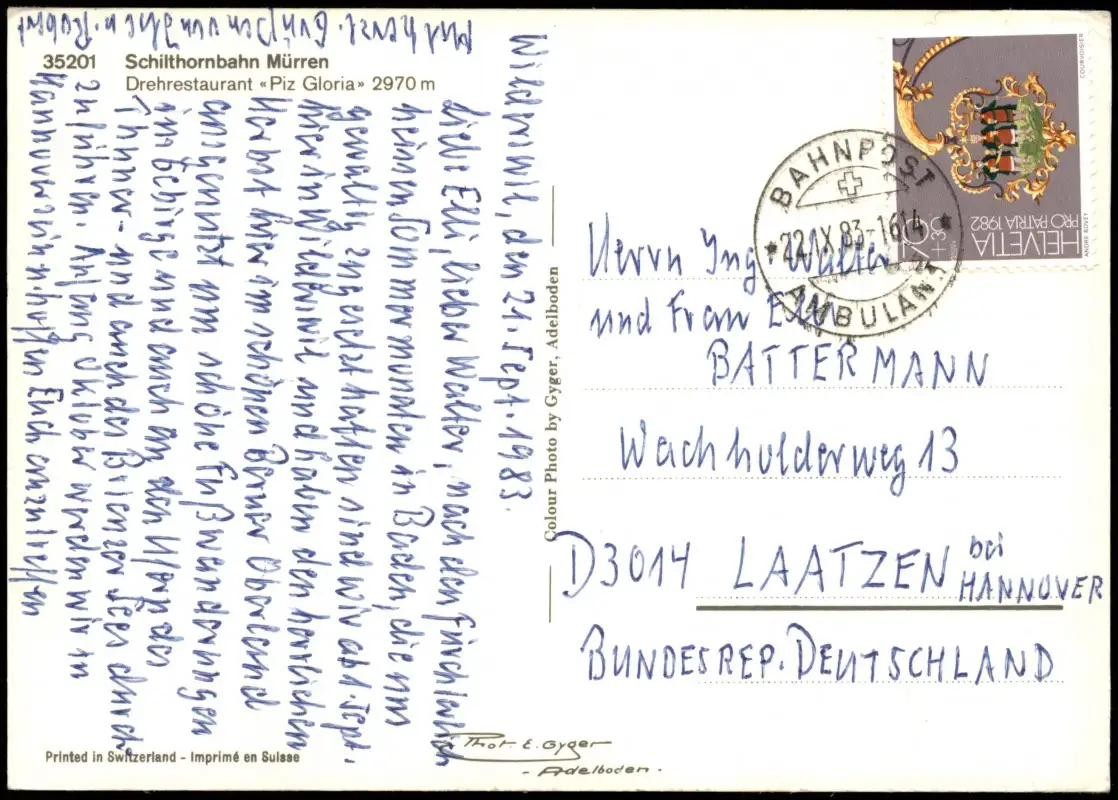 35201 Schilthornbahn Mürren
Drehrestaurant «Piz Gloria» 2970 m
Wilderswil, den 21. Sept. 1983.
Liebe Elli, lieber Walter, nach den fürchterlich
heissen Sommermonaten in Baden, die uns
gewaltig zugesetzt hatten sind wir ab 1. Sept.
hier in Wilderswil und haben den herrlichen
Herbst hier im schönen Berner Oberland
ausgenutzt um schöne Fußwanderungen
im Gebirge und auch an den Ufern des
Thuner- und auch des Brienzer Sees durch
zuführen. Anfang Oktober werden wir in
Hannover sein u. hoffen Euch anzutreffen
Mit herzl. Grüßen von Ihse u. Robert
Colour Photo by Gyger, Adelboden
HELVETIA
PRO PATRIA 1982
80+
COURVOISIER
ANDRÉ BOVEY
BAHNPOST
22.IX.83-1614
AMBULANT
Herrn Ing Walter
und Frau Elli
BATTERMANN
Wachholderweg 13
D3014 LAATZEN bei
HANNOVER
BUNDESREP. DEUTSCHLAND
Printed in Switzerland - Imprimé en Suisse
Phot. E. Gyger
- Adelboden -